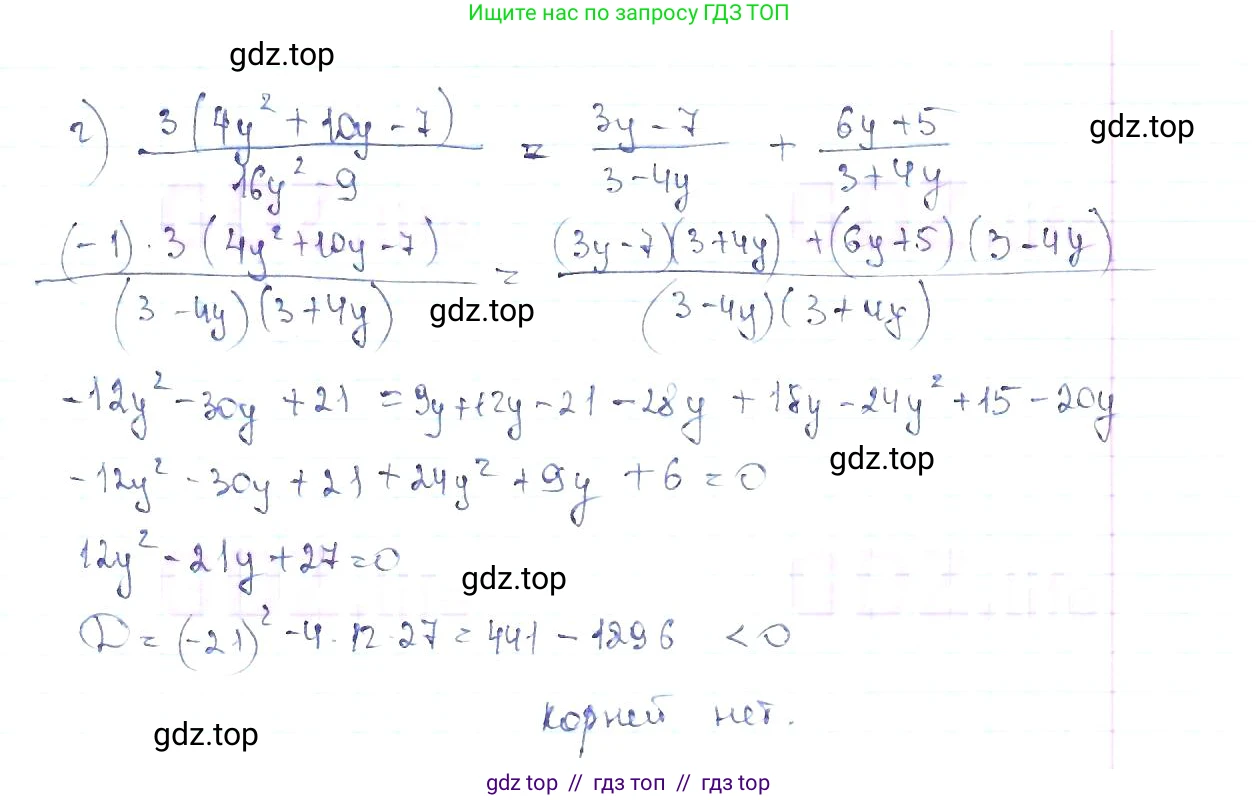 Ищите нас по запросу ГДЗ ТОП
gdz.top
г) 3(4y² + 10y - 7) / 16y² - 9 = 3y - 7 / 3 - 4y + 6y + 5 / 3 + 4y
gdz.top
(-1) · 3 (4y² + 10y - 7) / (3 - 4y)(3 + 4y) = (3y - 7)(3 + 4y) + (6y + 5)(3 - 4y) / (3 - 4y)(3 + 4y)
gdz.top
-12y² - 30y + 21 = 9y + 12y - 21 - 28y + 18y - 24y² + 15 - 20y
gdz.top
-12y² - 30y + 21 + 24y² + 9y + 6 = 0
12y² - 21y + 27 = 0
gdz.top
D = (-21)² - 4 · 12 · 27 = 441 - 1296 < 0
корней нет.
gdz.top
gdz top // гдз топ // гдз top